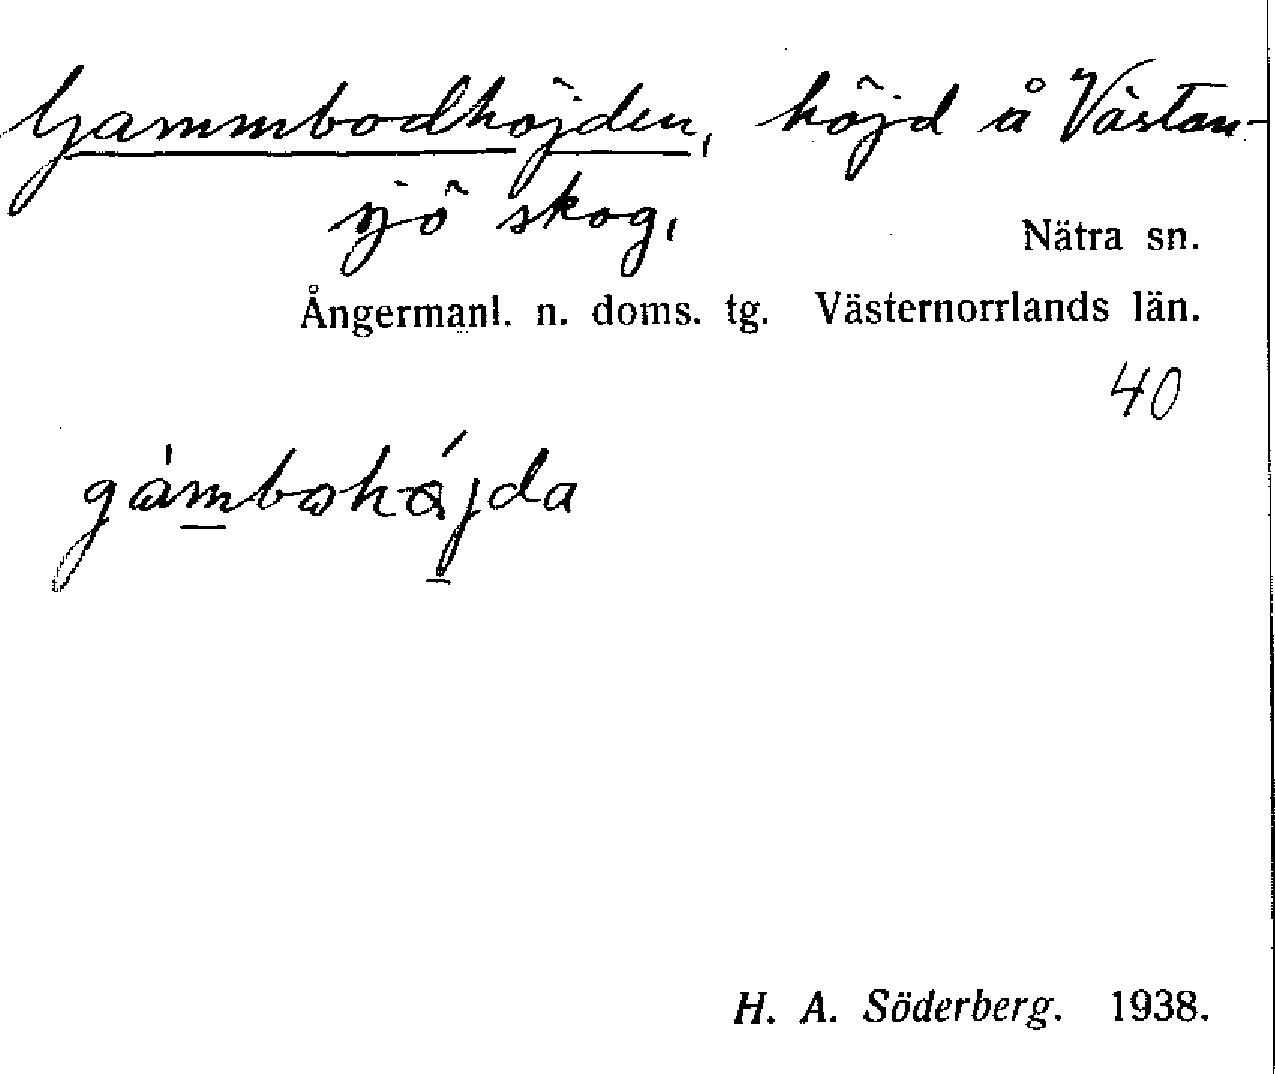 Gammbodhöjden, höjd å Västan-
sjö skog,
Nätra sn.
Ångermanl. n. doms. tg. Västernorrlands län.
40
H. A. Söderberg. 1938.